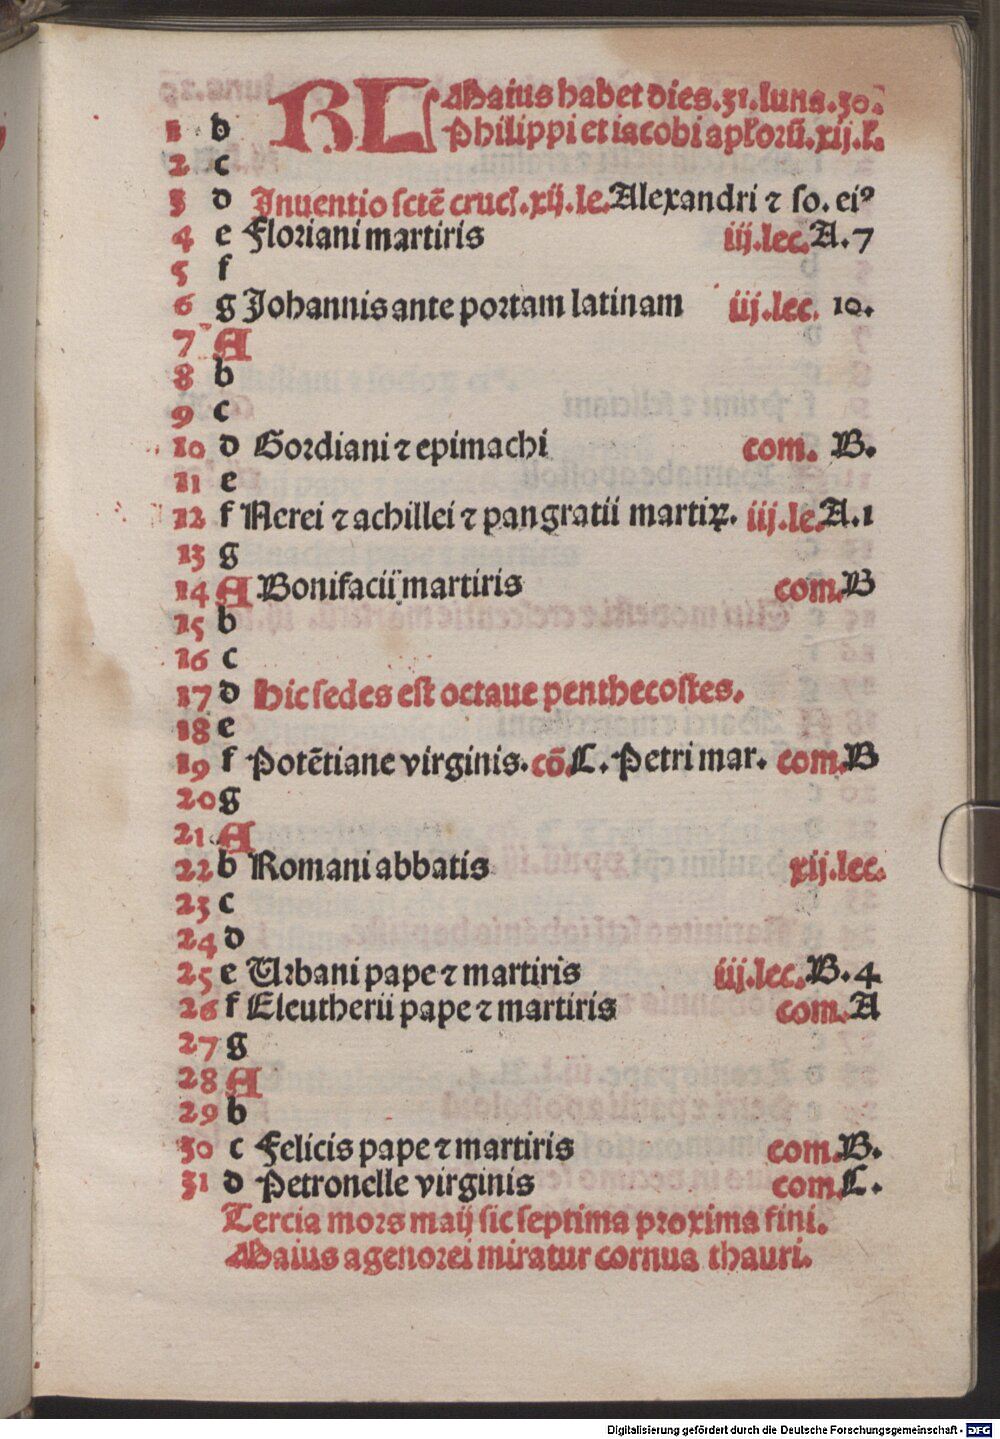 KL Maius habet dies.31.luna.30.
1 b Philippi et iacobi apłorū.xij.l.
2 c
3 d Inuentio sctē cruci.xij.le. Alexandri ⁊ so. eiꝰ
4 e Floriani martiris iij.lec. A.7
5 f
6 g Johannis ante portam latinam iij.lec. 10.
7 A
8 b
9 c
10 d Gordiani ⁊ epimachi com. B.
11 e
12 f Nerei ⁊ achillei ⁊ pangratii martiꝝ. iij.le. A.1
13 g
14 A Bonifacii martiris com. B
15 b
16 c
17 d Hic sedes est octaue penthecostes.
18 e
19 f Potētiane virginis. cō. C. Petri mar. com. B
20 g
21 A
22 b Romani abbatis xij.lec.
23 c
24 d
25 e Urbani pape ⁊ martiris iij.lec. B.4
26 f Eleutherii pape ⁊ martiris com. A
27 g
28 A
29 b
30 c Felicis pape ⁊ martiris com. B.
31 d Petronelle virginis com. C.
Tercia mors maij sic septima proxima fini.
Maius agenorei miratur cornua thauri.
Digitalisierung gefördert durch die Deutsche Forschungsgemeinschaft - DFG